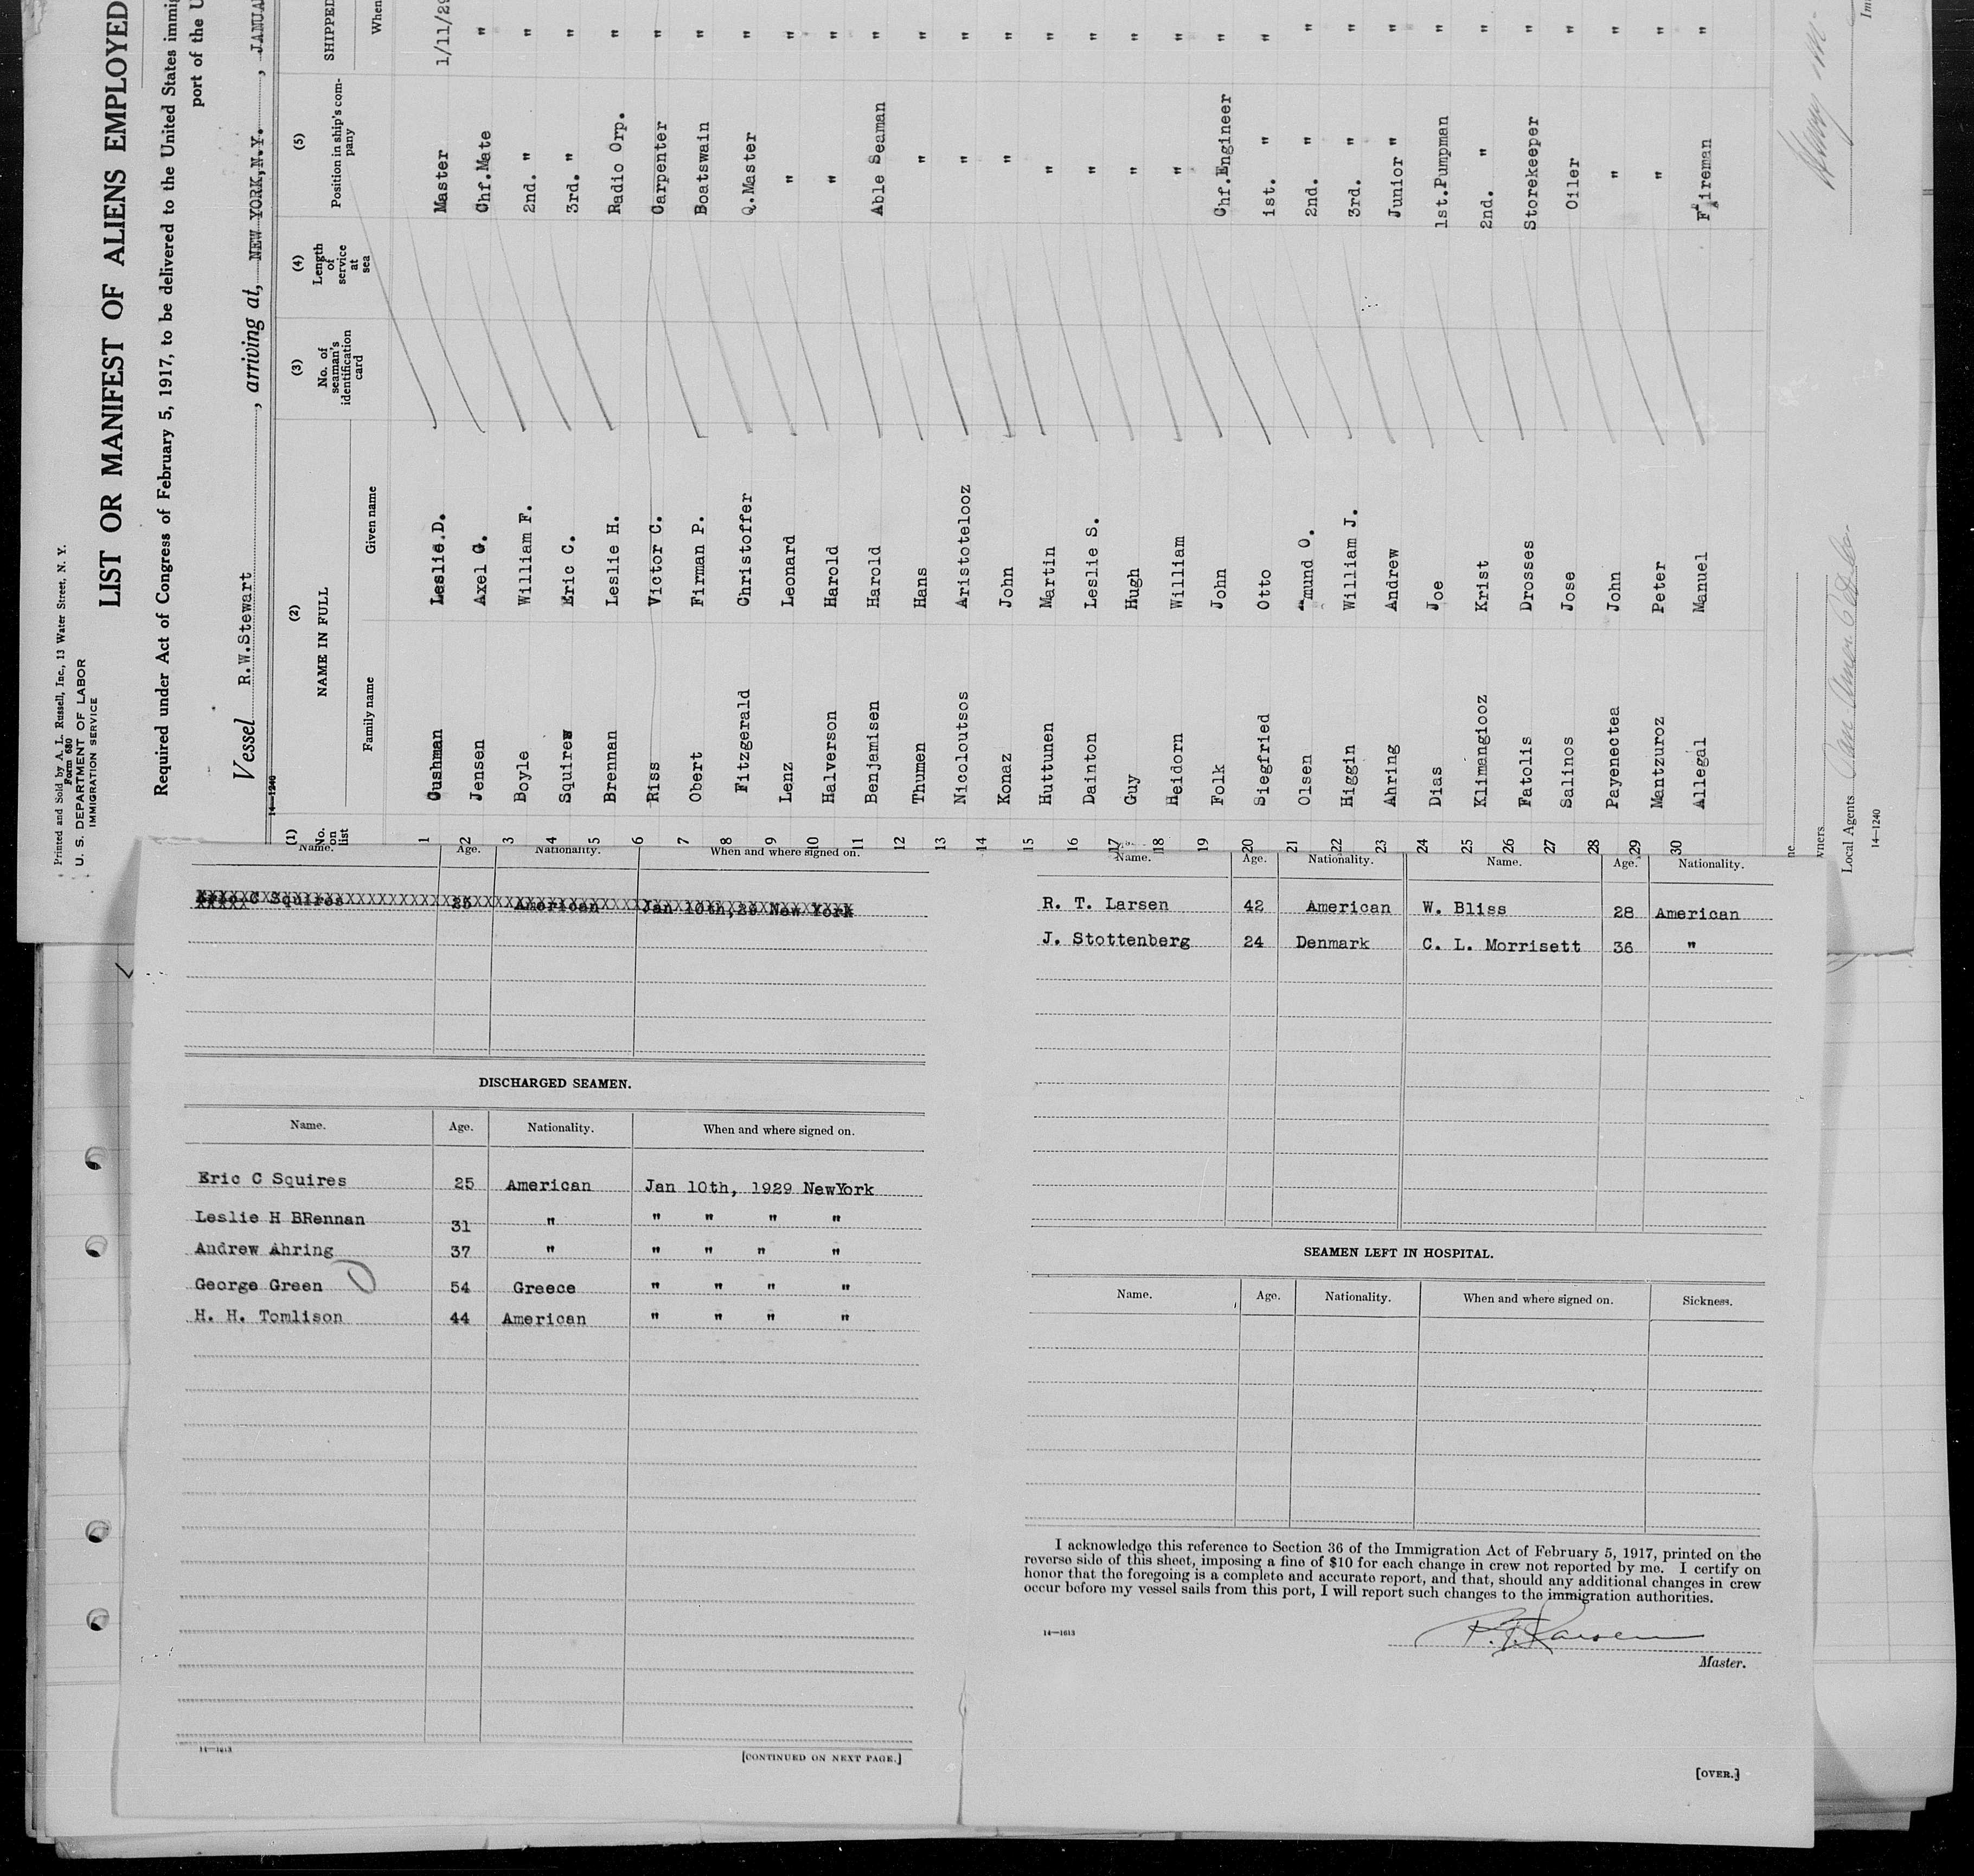 Printed and Sold by A. L. Russell, Inc., 13 Water Street, N. Y.
Form 680
U. S. DEPARTMENT OF LABOR
IMMIGRATION SERVICE
LIST OR MANIFEST OF ALIENS EMPLOYED
Required under Act of Congress of February 5, 1917, to be delivered to the United States immig
port of the U
Vessel R.W.Stewart, arriving at, NEW YORK,N.Y., JANUA
14—1240
(1) (2) (3) (4) (5)
No. on list NAME IN FULL No. of seaman's identification card Length of service at sea Position in ship's company SHIPPED
Family name Given name When
1 Cushman Leslie.D. Master 1/11/29
2 Jensen Axel G. Chf.Mate "
3 Boyle William F. 2nd. " "
4 Squirew Eric C. 3rd. " "
5 Brennan Leslie H. Radio Orp. "
6 Riss Victor C. Carpenter "
7 Obert Firman P. Boatswain "
8 Fitzgerald Christoffer Q.Master "
9 Lenz Leonard " "
10 Halverson Harold " "
11 Benjamisen Harold Able Seaman "
12 Thumen Hans " "
13 Nicoloutsos Aristotelooz " "
14 Konaz John " "
15 Huttunen Martin " "
16 Dainton Leslie S. " "
17 Guy Hugh " "
18 Heidorn William " "
19 Folk John Chf.Engineer "
20 Siegfried Otto 1st. " "
21 Olsen mund O. 2nd. " "
22 Higgin William J. 3rd. " "
23 Ahring Andrew Junior " "
24 Dias Joe 1st.Pumpman "
25 Klimangiooz Krist 2nd. " "
26 Fatolis Drosses Storekeeper "
27 Salinos Jose Oiler "
28 Payenectea John " "
29 Mantzuroz Peter " "
30 Allegal Manuel Fireman "
Local Agents
14—1240
Name. Age. Nationality. When and where signed on.
Eric C Squires 25 American Jan 10th,29 New York
DISCHARGED SEAMEN.
Name. Age. Nationality. When and where signed on.
Eric C Squires 25 American Jan 10th, 1929 NewYork
Leslie H BRennan 31 " " " " "
Andrew Ahring 37 " " " " "
George Green 54 Greece " " " "
H. H. Tomlison 44 American " " " "
14—1613
[CONTINUED ON NEXT PAGE.]
Name. Age. Nationality. Name. Age. Nationality.
R. T. Larsen 42 American W. Bliss 28 American
J. Stottenberg 24 Denmark C. L. Morrisett 36 "
SEAMEN LEFT IN HOSPITAL.
Name. Age. Nationality. When and where signed on. Sickness.
I acknowledge this reference to Section 36 of the Immigration Act of February 5, 1917, printed on the
reverse side of this sheet, imposing a fine of $10 for each change in crew not reported by me. I certify on
honor that the foregoing is a complete and accurate report, and that, should any additional changes in crew
occur before my vessel sails from this port, I will report such changes to the immigration authorities.
14—1613
R.T.Larsen
Master.
[OVER.]